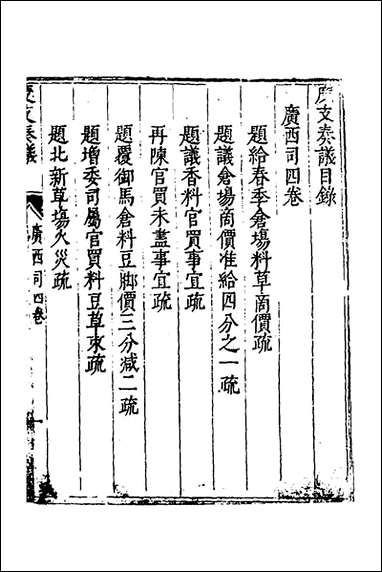 度支奏議目錄
廣西司四卷
題給春季倉場料草商價疏
題議倉場商價准給四分之一疏
題議香料官買事宜疏
再陳官買未盡事宜疏
題覆御馬倉料豆脚價三分減二疏
題增委司屬官買料豆草束疏
題北新草場火災疏
度支奏議
廣西司四卷
一